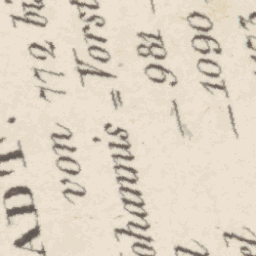 ADT.
von 772
ohannis = Vorst
— 981
— 1090